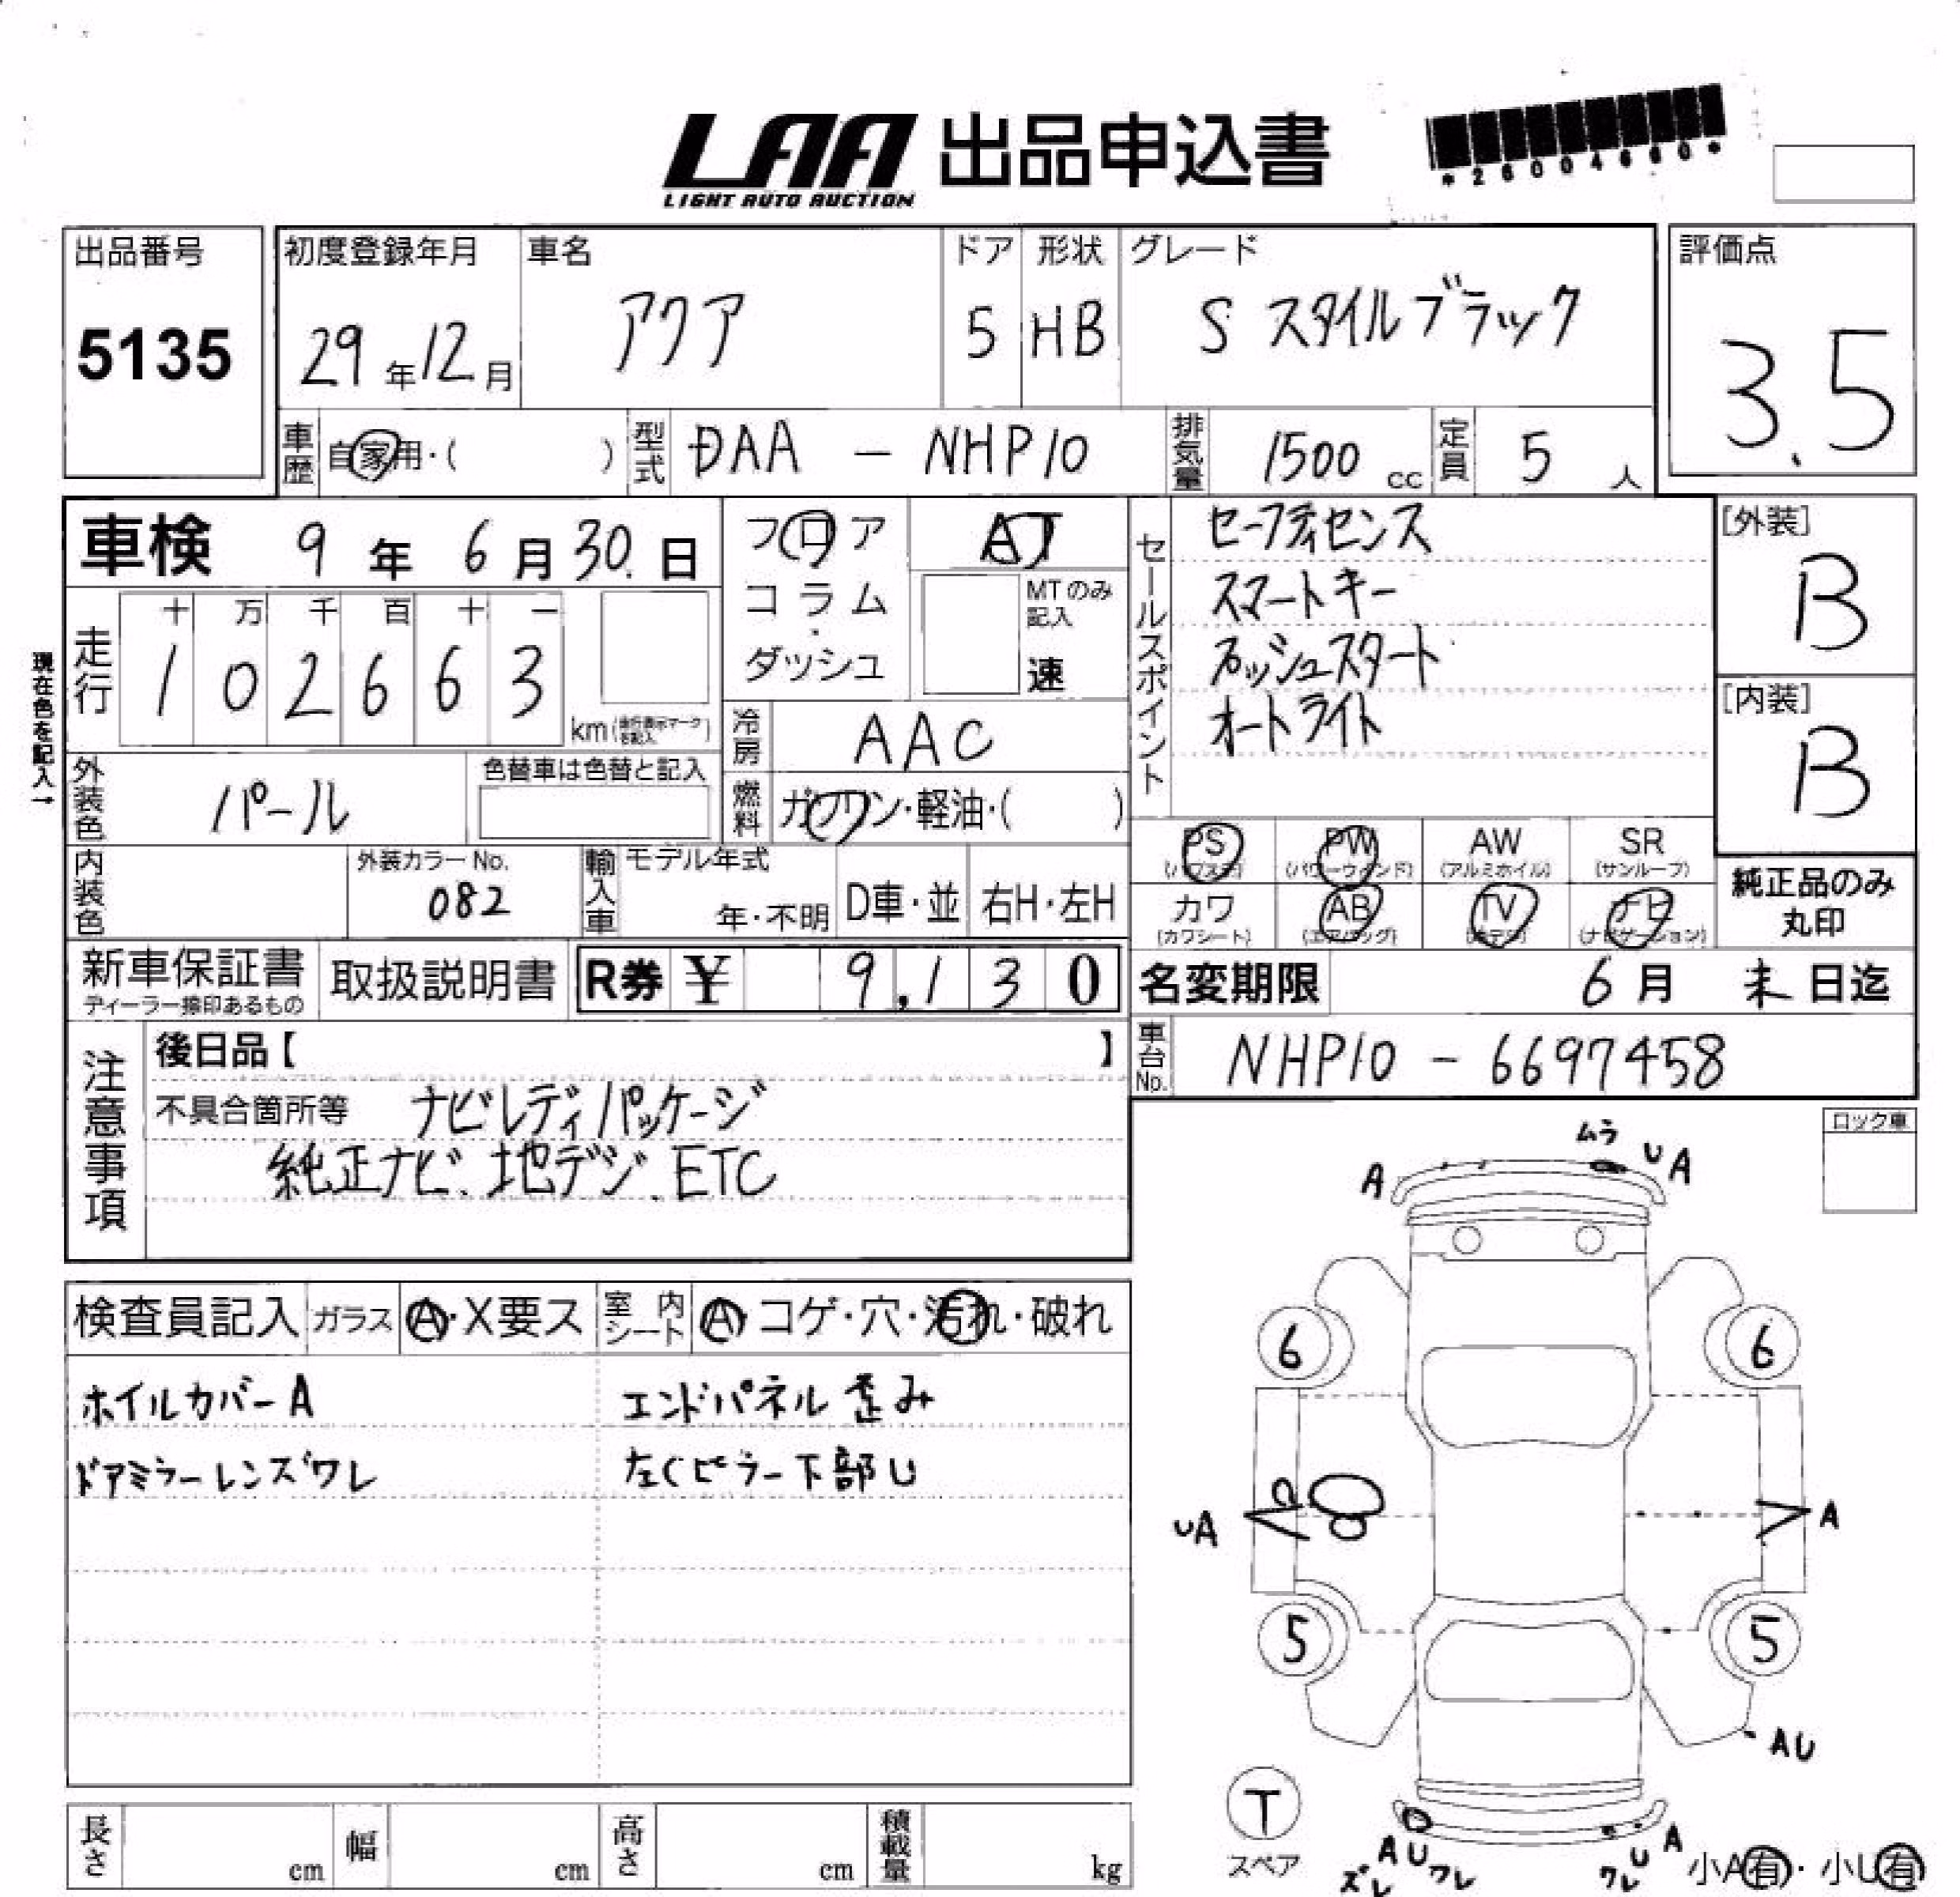 LAA 出品申込書
LIGHT AUTO AUCTION
*26004660*
出品番号
5135
初度登録年月
29年12月
車名
アクア
ドア
5
形状
HB
グレード
S スタイルブラック
評価点
3.5
車歴 自家用・( )
型式 DAA - NHP10
排気量 1500 cc
定員 5 人
車検 9年6月30日
フロア
コラム
・
ダッシュ
AT
MTのみ
記入
速
セールスポイント
セーフティセンス
スマートキー
プッシュスタート
オートライト
[外装]
B
[内装]
B
現在色を記入→
走行
十 万 千 百 十 一
1 0 2 6 6 3
km(走行表示マークを記入)
冷房 AAC
燃料 ガソリン・軽油・( )
外装色 パール
色替車は色替と記入
内装色
外装カラーNo.
082
輸入車
モデル年式
年・不明
D車・並
右H・左H
PS
(パワステ)
PW
(パワーウィンド)
AW
(アルミホイル)
SR
(サンルーフ)
カワ
(カワシート)
AB
(エアバッグ)
TV
ナビ
(ナビゲーション)
純正品のみ
丸印
新車保証書
ディーラー捺印あるもの
取扱説明書
R券 ¥ 9,130
名変期限 6月 末日迄
車台No. NHP10 - 6697458
注意事項
後日品【 】
不具合箇所等 ナビレディパッケージ
純正ナビ、地デジ、ETC
ロック車
検査員記入
ガラス
A・X要ス
室内シート
A・コゲ・穴・汚れ・破れ
ホイルカバーA
エンドパネル歪み
ドアミラーレンズワレ
左Cピラー下部U
ムラ
A
U A
6
6
UA
A
5
5
AU
T
スペア
A U ワレ
ズレ
A
U
ワレ
小A有・小U有
長さ cm
幅 cm
高さ cm
積載量 kg